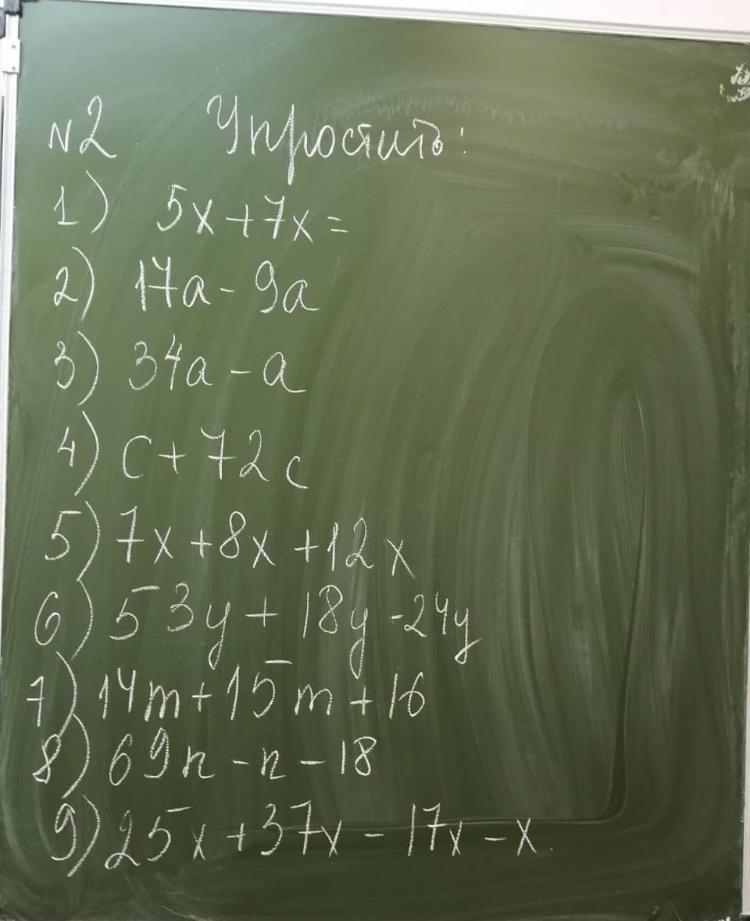 N2 Упростить:
1) 5x+7x=
2) 17a-9a
3) 34a-a
4) c+72c
5) 7x+8x+12x
6) 53y+18y-24y
7) 14m+15m+16
8) 69n-n-18
9) 25x+37x-17x-x.